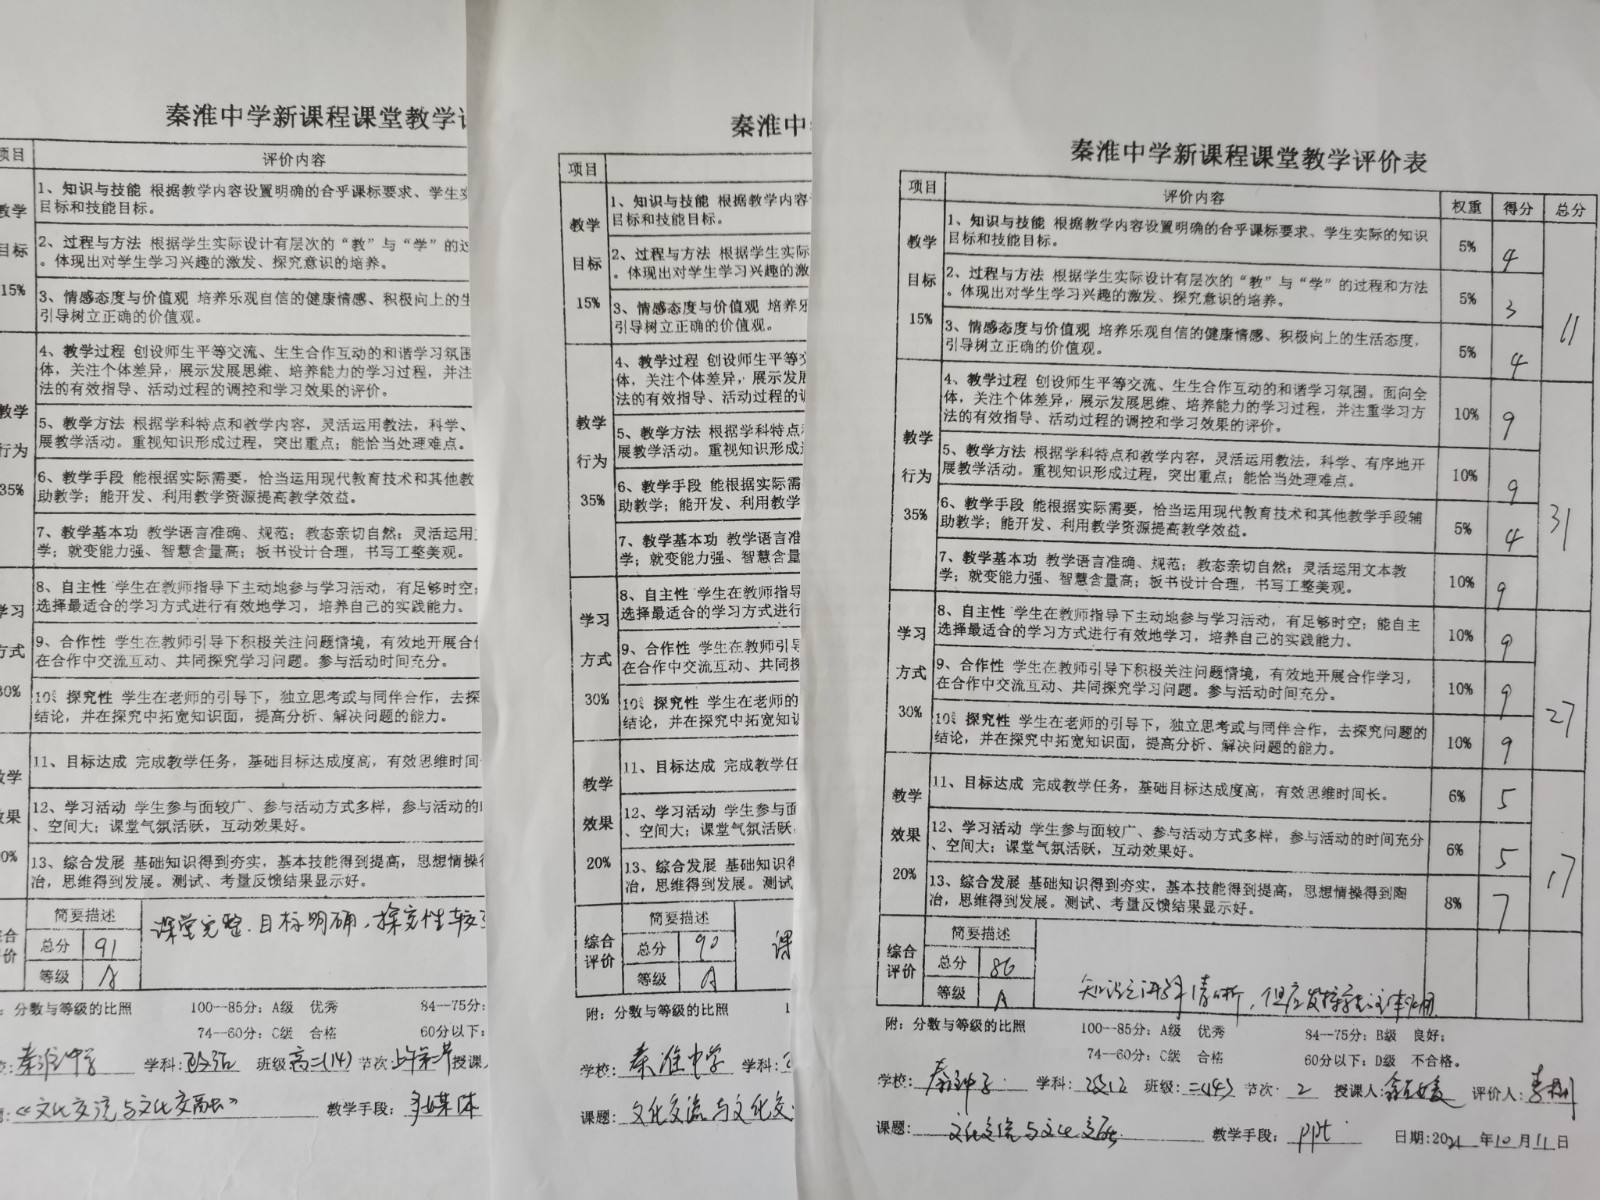 秦淮中学新课程课堂教学评
项目
评价内容
教学
目标
15%
1、知识与技能 根据教学内容设置明确的合乎课标要求、学生实
目标和技能目标。
2、过程与方法 根据学生实际设计有层次的“教”与“学”的过
。体现出对学生学习兴趣的激发、探究意识的培养。
3、情感态度与价值观 培养乐观自信的健康情感、积极向上的生
引导树立正确的价值观。
教学
行为
35%
4、教学过程 创设师生平等交流、生生合作互动的和谐学习氛围
体，关注个体差异，展示发展思维、培养能力的学习过程，并注
法的有效指导、活动过程的调控和学习效果的评价。
5、教学方法 根据学科特点和教学内容，灵活运用教法，科学、
展教学活动。重视知识形成过程，突出重点；能恰当处理难点。
6、教学手段 能根据实际需要，恰当运用现代教育技术和其他教
助教学；能开发、利用教学资源提高教学效益。
7、教学基本功 教学语言准确、规范；教态亲切自然；灵活运用
学；就变能力强、智慧含量高；板书设计合理，书写工整美观。
学习
方式
30%
8、自主性 学生在教师指导下主动地参与学习活动，有足够时空；
选择最适合的学习方式进行有效地学习，培养自己的实践能力。
9、合作性 学生在教师引导下积极关注问题情境，有效地开展合
在合作中交流互动、共同探究学习问题。参与活动时间充分。
10、探究性 学生在老师的引导下，独立思考或与同伴合作，去探
结论，并在探究中拓宽知识面，提高分析、解决问题的能力。
学
果
0%
11、目标达成 完成教学任务，基础目标达成度高，有效思维时间
12、学习活动 学生参与面较广、参与活动方式多样，参与活动的
、空间大；课堂气氛活跃，互动效果好。
13、综合发展 基础知识得到夯实，基本技能得到提高，思想情操
冶，思维得到发展。测试、考量反馈结果显示好。
合
价
简要描述
总分 91
等级 A
课堂完整，目标明确，探究性较
：分数与等级的比照 100--85分：A级 优秀 84--75分：
74--60分：C级 合格 60分以下：
：秦淮中学 学科：政治 班级 高二(14) 节次 上午第二节 授课
：《文化交流与文化交融》 教学手段：多媒体
秦淮中
项目
教学
目标
15%
1、知识与技能 根据教学内容
目标和技能目标。
2、过程与方法 根据学生实际
。体现出对学生学习兴趣的激
3、情感态度与价值观 培养乐
引导树立正确的价值观。
教学
行为
35%
4、教学过程 创设师生平等交
体，关注个体差异，展示发展
法的有效指导、活动过程的调
5、教学方法 根据学科特点
展教学活动。重视知识形成
6、教学手段 能根据实际需
助教学；能开发、利用教学
7、教学基本功 教学语言准
学；就变能力强、智慧含量
学习
方式
30%
8、自主性 学生在教师指导
选择最适合的学习方式进行
9、合作性 学生在教师引导
在合作中交流互动、共同探
10、探究性 学生在老师的
结论，并在探究中拓宽知识
教学
效果
20%
11、目标达成 完成教学任
12、学习活动 学生参与面
、空间大；课堂气氛活跃，
13、综合发展 基础知识得
冶，思维得到发展。测试
综合
评价
简要描述
总分 90
等级 A
课
附：分数与等级的比照 1
学校：秦淮中学 学科：
课题：文化交流与文化交
秦淮中学新课程课堂教学评价表
项目 评价内容 权重 得分 总分
教学
目标
15%
1、知识与技能 根据教学内容设置明确的合乎课标要求、学生实际的知识
目标和技能目标。
5% 4
2、过程与方法 根据学生实际设计有层次的“教”与“学”的过程和方法
。体现出对学生学习兴趣的激发、探究意识的培养。
5% 3
3、情感态度与价值观 培养乐观自信的健康情感、积极向上的生活态度，
引导树立正确的价值观。
5% 4
11
教学
行为
35%
4、教学过程 创设师生平等交流、生生合作互动的和谐学习氛围。面向全
体，关注个体差异，展示发展思维、培养能力的学习过程，并注重学习方
法的有效指导、活动过程的调控和学习效果的评价。
10% 9
5、教学方法 根据学科特点和教学内容，灵活运用教法，科学、有序地开
展教学活动。重视知识形成过程，突出重点；能恰当处理难点。
10% 9
6、教学手段 能根据实际需要，恰当运用现代教育技术和其他教学手段辅
助教学；能开发、利用教学资源提高教学效益。
5% 4
7、教学基本功 教学语言准确、规范；教态亲切自然；灵活运用文本教
学；就变能力强、智慧含量高；板书设计合理，书写工整美观。
10% 9
31
学习
方式
30%
8、自主性 学生在教师指导下主动地参与学习活动，有足够时空；能自主
选择最适合的学习方式进行有效地学习，培养自己的实践能力。
10% 9
9、合作性 学生在教师引导下积极关注问题情境，有效地开展合作学习，
在合作中交流互动、共同探究学习问题。参与活动时间充分。
10% 9
10、探究性 学生在老师的引导下，独立思考或与同伴合作，去探究问题的
结论，并在探究中拓宽知识面，提高分析、解决问题的能力。
10% 9
27
教学
效果
20%
11、目标达成 完成教学任务，基础目标达成度高，有效思维时间长。
6% 5
12、学习活动 学生参与面较广、参与活动方式多样，参与活动的时间充分
、空间大；课堂气氛活跃，互动效果好。
6% 5
13、综合发展 基础知识得到夯实，基本技能得到提高，思想情操得到陶
冶，思维得到发展。测试、考量反馈结果显示好。
8% 7
17
综合
评价
简要描述
总分 86
等级 A
知识点讲得清晰，但应发挥学生主体作用
附：分数与等级的比照 100--85分：A级 优秀 84--75分：B级 良好；
74--60分：C级 合格 60分以下：D级 不合格。
学校：秦淮中学 学科：政治 班级：二(14) 节次：2 授课人： 评价人：
课题：文化交流与文化交融 教学手段：ppt 日期：2021年10月11日